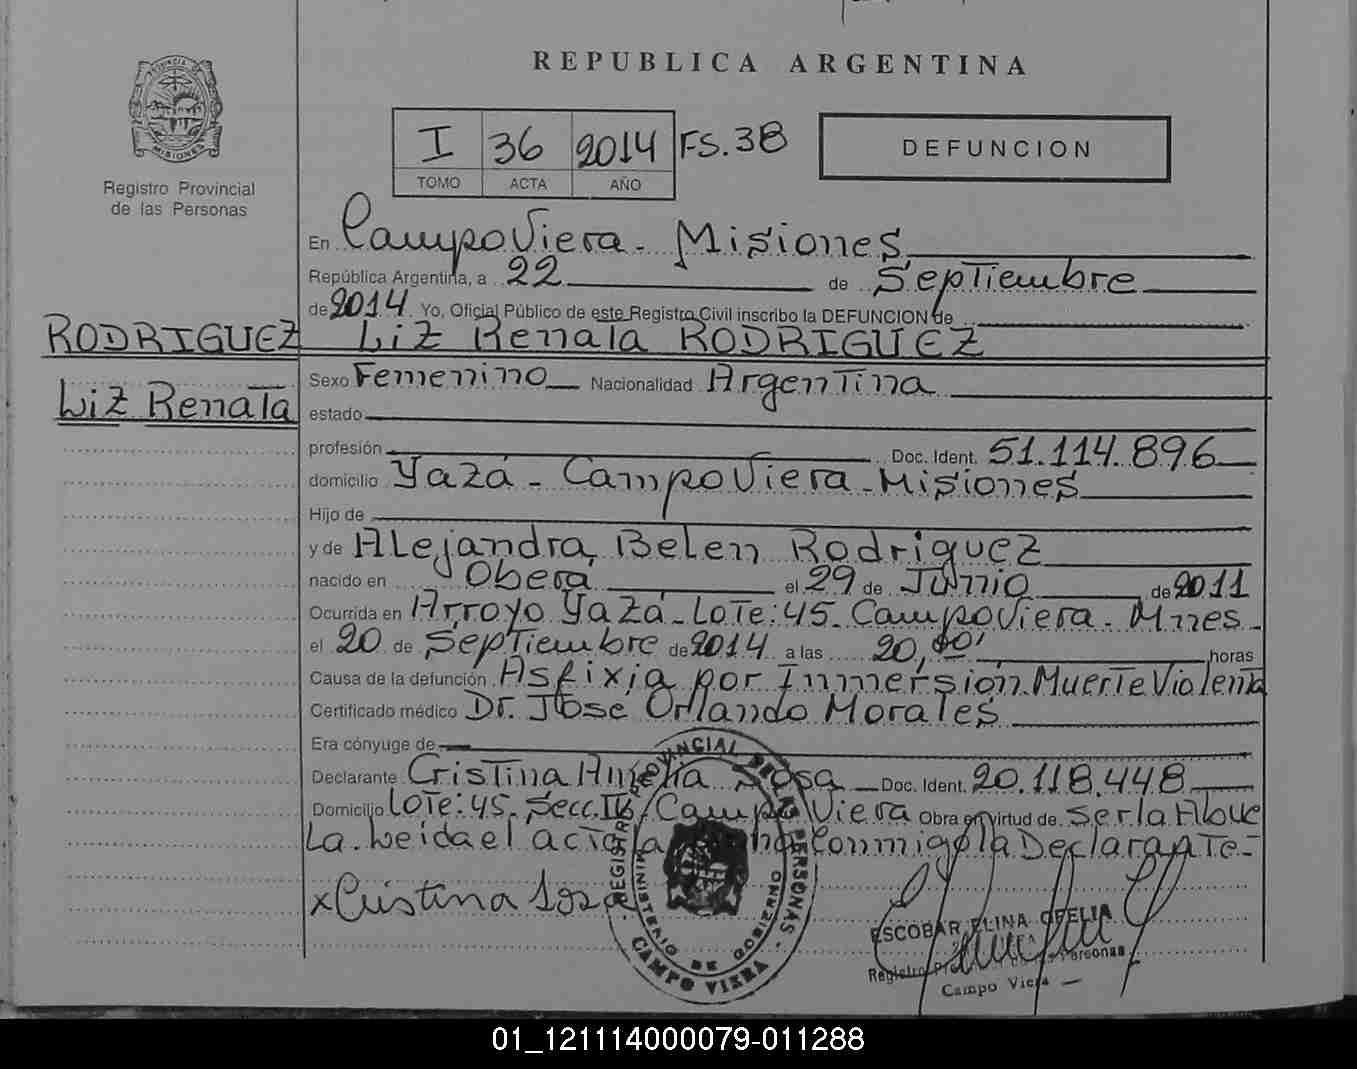 REPUBLICA ARGENTINA
PROVINCIA DE
MISIONES
Registro Provincial
de las Personas
I 36 2014 FS.38
TOMO ACTA AÑO
DEFUNCION
En Campo Viera - Misiones
República Argentina, a 22 de Septiembre
de 2014 Yo, Oficial Público de este Registro Civil inscribo la DEFUNCION de
RODRIGUEZ Liz Renata RODRIGUEZ
Liz Renata
Sexo Femenino Nacionalidad Argentina
estado
profesión Doc. Ident. 51.114.896
domicilio Yazá - Campo Viera - Misiones
Hijo de
y de Alejandra Belen Rodriguez
nacido en Oberá el 29 de Junio de 2011
Ocurrida en Arroyo Yazá - Lote: 45 - Campo Viera - Mnes -
el 20 de Septiembre de 2014 a las 20, horas
Causa de la defunción Asfixia por Inmersión. Muerte Violenta
Certificado médico Dr. José Orlando Morales
Era cónyuge de
Declarante Cristina Amelia Sosa Doc. Ident. 20.118.448
Domicilio Lote: 45 - Secc. Campo Viera Obra en virtud de ser la Abue
La. Leida el acta la conmigo la Declarante -
x Cristina Sosa
REGISTRO PROVINCIAL DE LAS PERSONAS - CAMPO VIERA
MINISTERIO DE GOBIERNO
ESCOBAR ELINA OFELIA
Registro Personas
Campo Viera
01_121114000079-011288